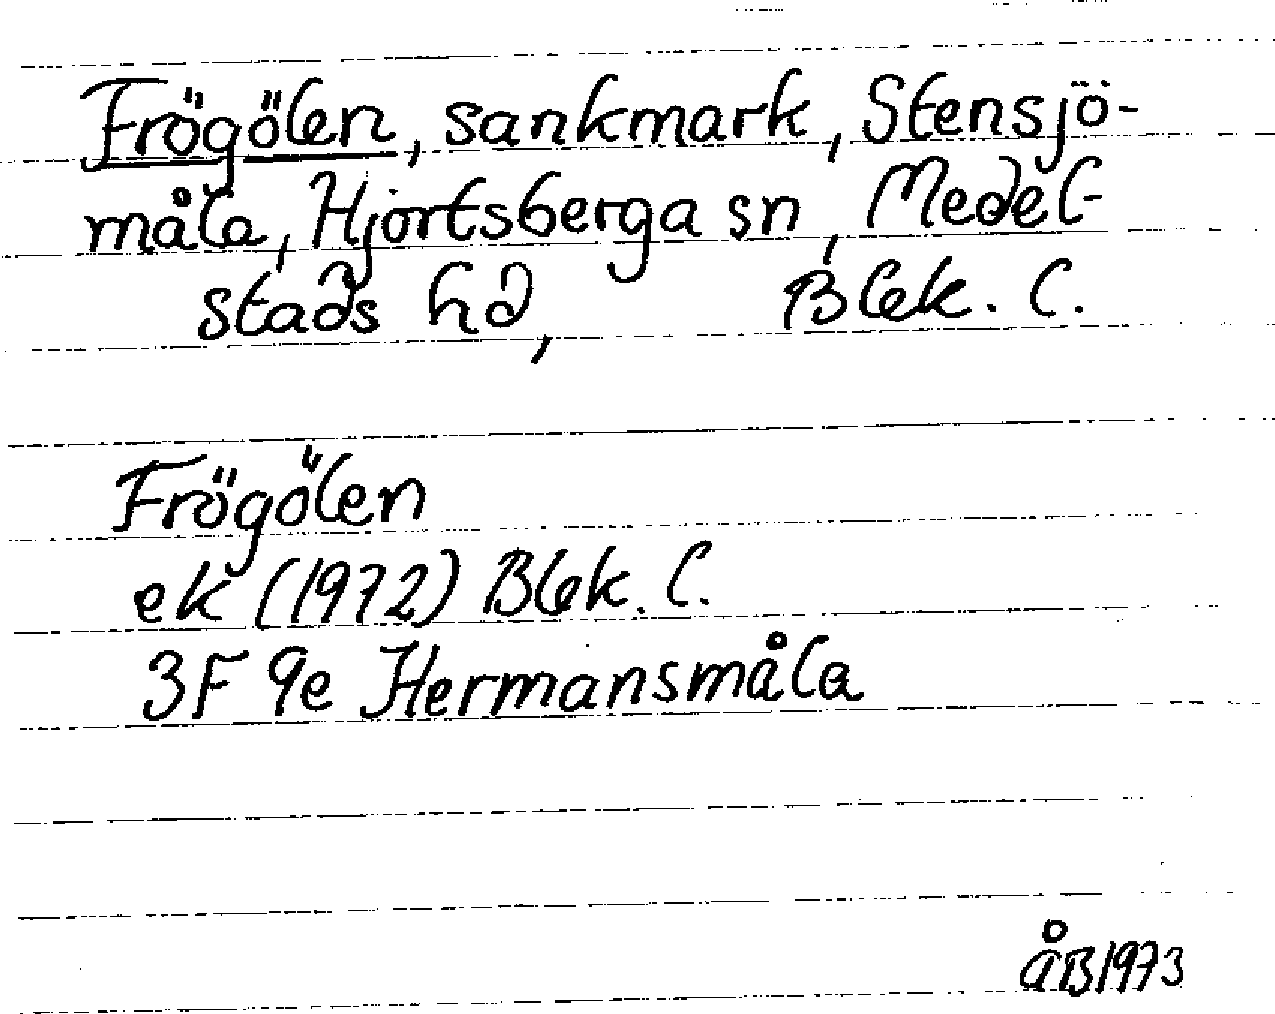 Frögölen, sankmark, Stensjö-
måla, Hjortsberga sn, Medel-
stads hd, Blek. l.
Frögölen
ek (1972) Blek. l.
3F 9e Hermansmåla
ÅB 1973